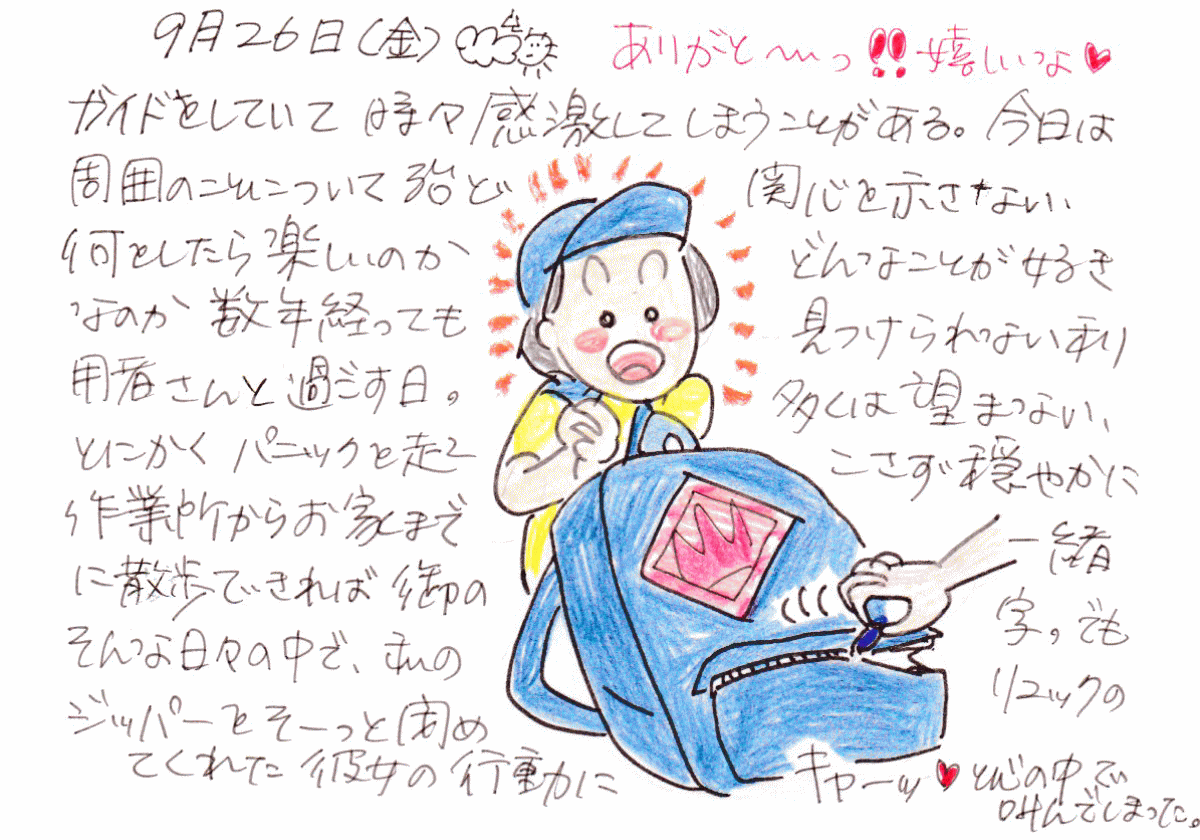 9月26日(金)
ありがと〜〜っ!!嬉しいっょ♥
ガイドをしていて時々感激してしまうことがある。今日は
周囲のことについて殆ど関心を示さない
何をしたら楽しいのかどんなことが好き
なのか数年経っても見つけられない利
用者さんと過ごす日。多くは望まない、
とにかくパニックを起こさず穏やかに
作業所からお家まで一緒
に散歩できれば御の字。でも
そんな日々の中で、私のリュックの
ジッパーをそーっと閉め
てくれた彼女の行動にキャーッ♥と心の中で
叫んでしまった。